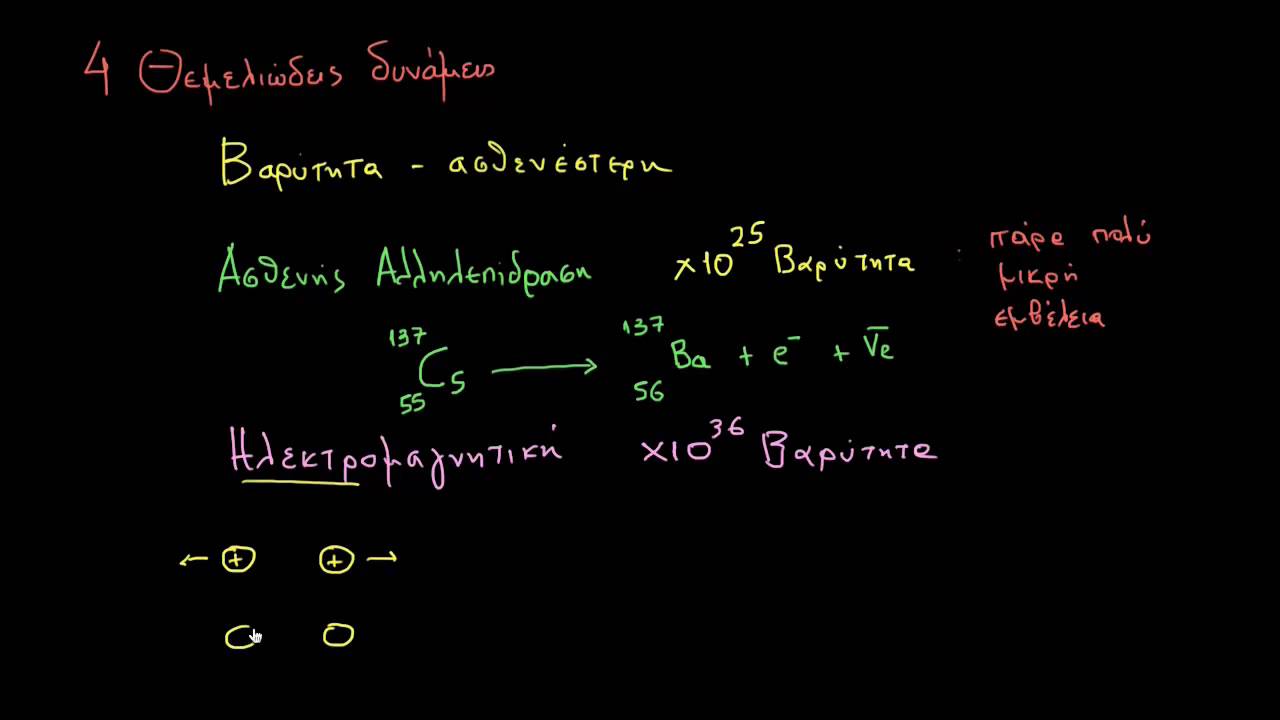 4 Θεμελιώδεις δυνάμεις
Βαρύτητα - ασθενέστερη
Ασθενής Αλληλεπίδραση ×10^25 Βαρύτητα : πάρα πολύ
μικρή
εμβέλεια
137 55 Cs ⟶ 137 56 Ba + e⁻ + ν̅e
Ηλεκτρομαγνητική ×10^36 Βαρύτητα
← + + →